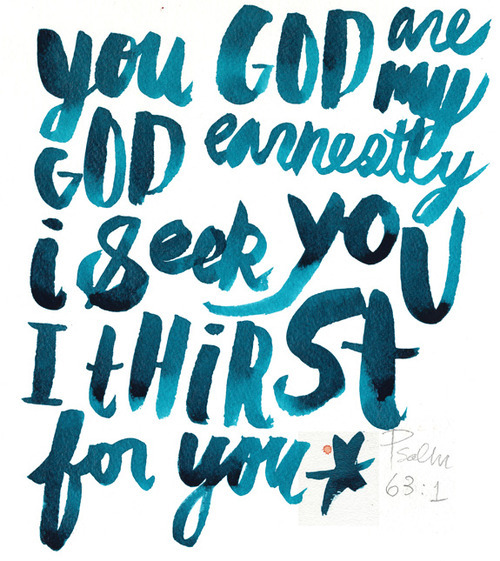 you GOD are
my
GOD earnestly
i Seek yoU
I tHiRSt
for you
Psalm
63:1